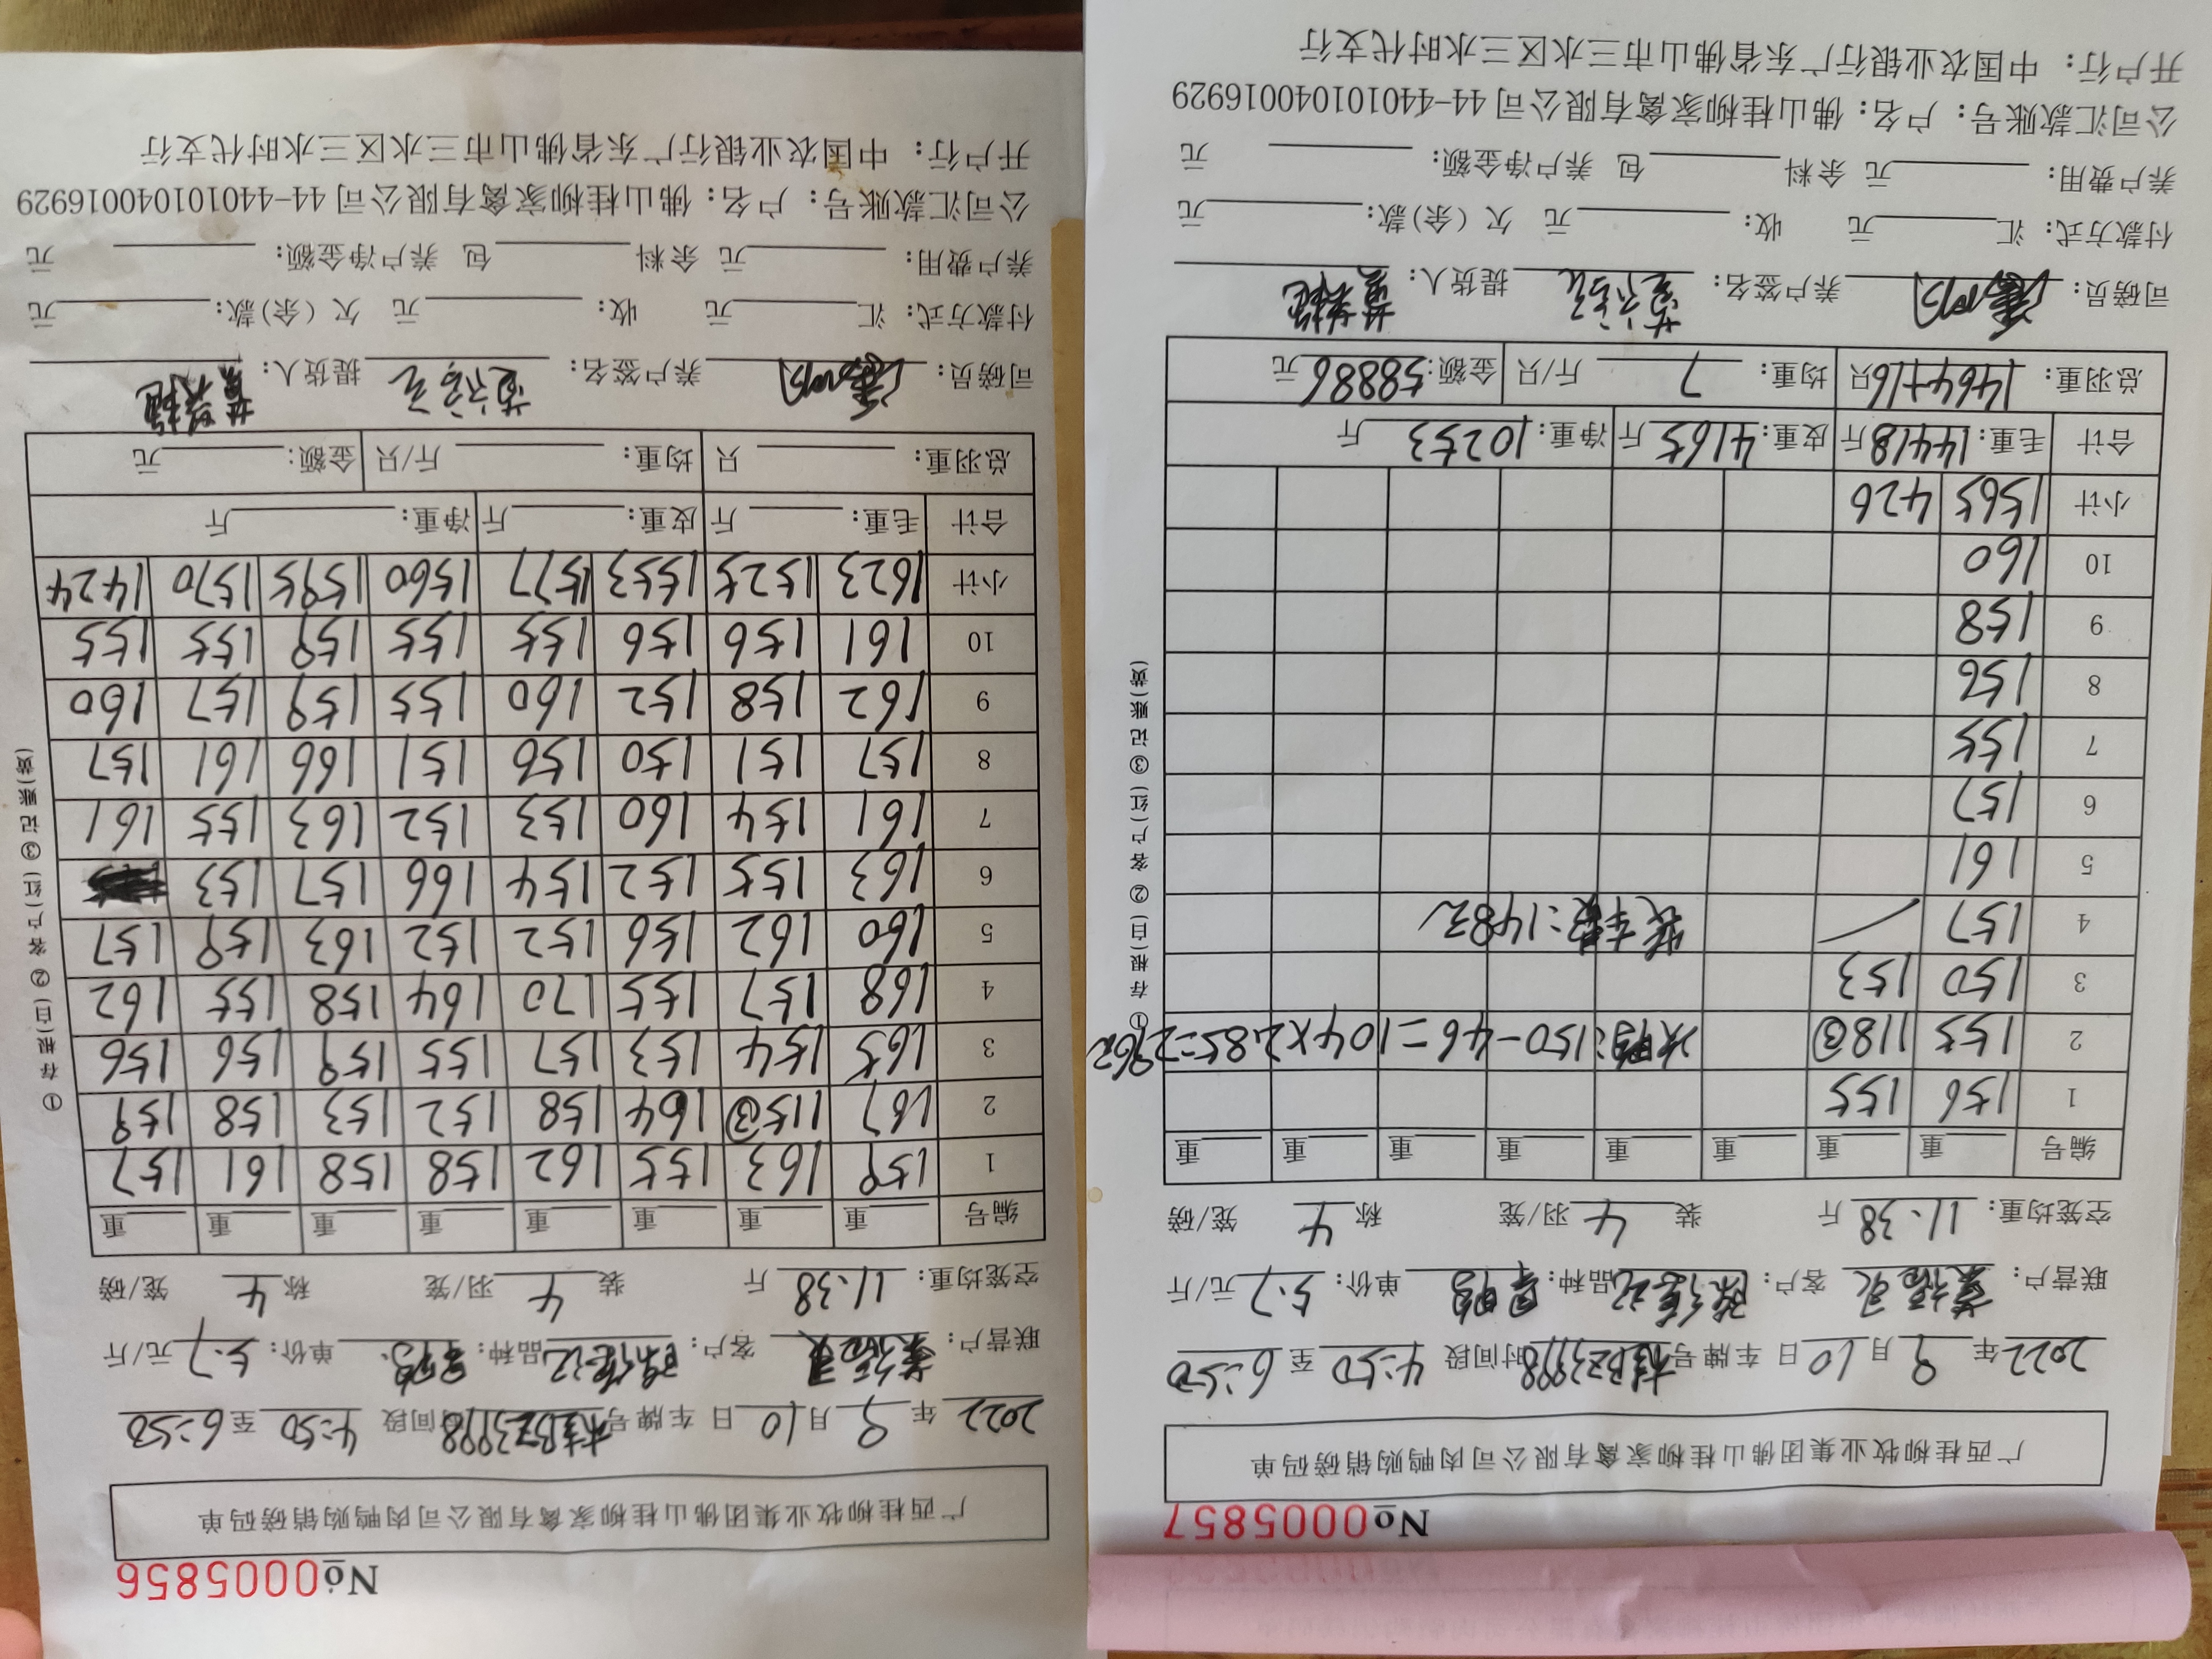 No0005857
广西桂柳牧业集团佛山桂柳家禽有限公司肉鸭购销磅码单
2022年 9月10日 车牌号 桂BZ3998 时间段 4:50 至 6:50
联营户: 客户: 品种: 单价: 5.7元/斤
空笼均重: 11.38 斤 装 4 羽/笼 称 4 笼/磅
编号 重 重 重 重 重 重 重 重
1 156 155
2 155 118③ 次鸭:150-46=104×2.85=296元
3 150 153
4 157 装车数:1483
5 161
6 157
7 155
8 156
9 158
10 160
小计 1565 426
合计 毛重:14418斤 皮重:4165斤 净重:10253斤
总羽重: 1464+16只 均重: 7 斤/只 金额:58886元
司磅员: 养户签名: 提货人:
付款方式: 汇 元 收: 元 欠(余)款: 元
养户费用: 元 余料 包 养户净金额: 元
公司汇款账号: 户名: 佛山桂柳家禽有限公司 44-440101040016929
开户行: 中国农业银行广东省佛山市三水区三水时代支行
①存根(白) ②客户(红) ③记账(黄)
No0005856
广西桂柳牧业集团佛山桂柳家禽有限公司肉鸭购销磅码单
2022年 9月10日 车牌号 桂BZ3998 时间段 4:50 至 6:50
联营户: 客户: 品种: 单价: 5.7元/斤
空笼均重: 11.38 斤 装 4 羽/笼 称 4 笼/磅
编号 重 重 重 重 重 重 重 重
1 159 163 155 162 158 158 161 157
2 167 115③ 164 158 152 153 158 159
3 165 154 153 157 155 159 156 156
4 168 157 155 170 164 158 155 162
5 160 162 156 152 152 163 159 157
6 163 155 152 154 166 157 153
7 161 154 160 153 152 163 155 161
8 157 151 150 156 151 166 161 157
9 162 158 152 160 155 159 157 160
10 161 156 156 155 155 159 155 155
小计 1623 1525 1553 1577 1560 1595 1570 1424
合计 毛重: 斤 皮重: 斤 净重: 斤
总羽重: 只 均重: 斤/只 金额: 元
司磅员: 养户签名: 提货人:
付款方式: 汇 元 收: 元 欠(余)款: 元
养户费用: 元 余料 包 养户净金额: 元
公司汇款账号: 户名: 佛山桂柳家禽有限公司 44-440101040016929
开户行: 中国农业银行广东省佛山市三水区三水时代支行
①存根(白) ②客户(红) ③记账(黄)